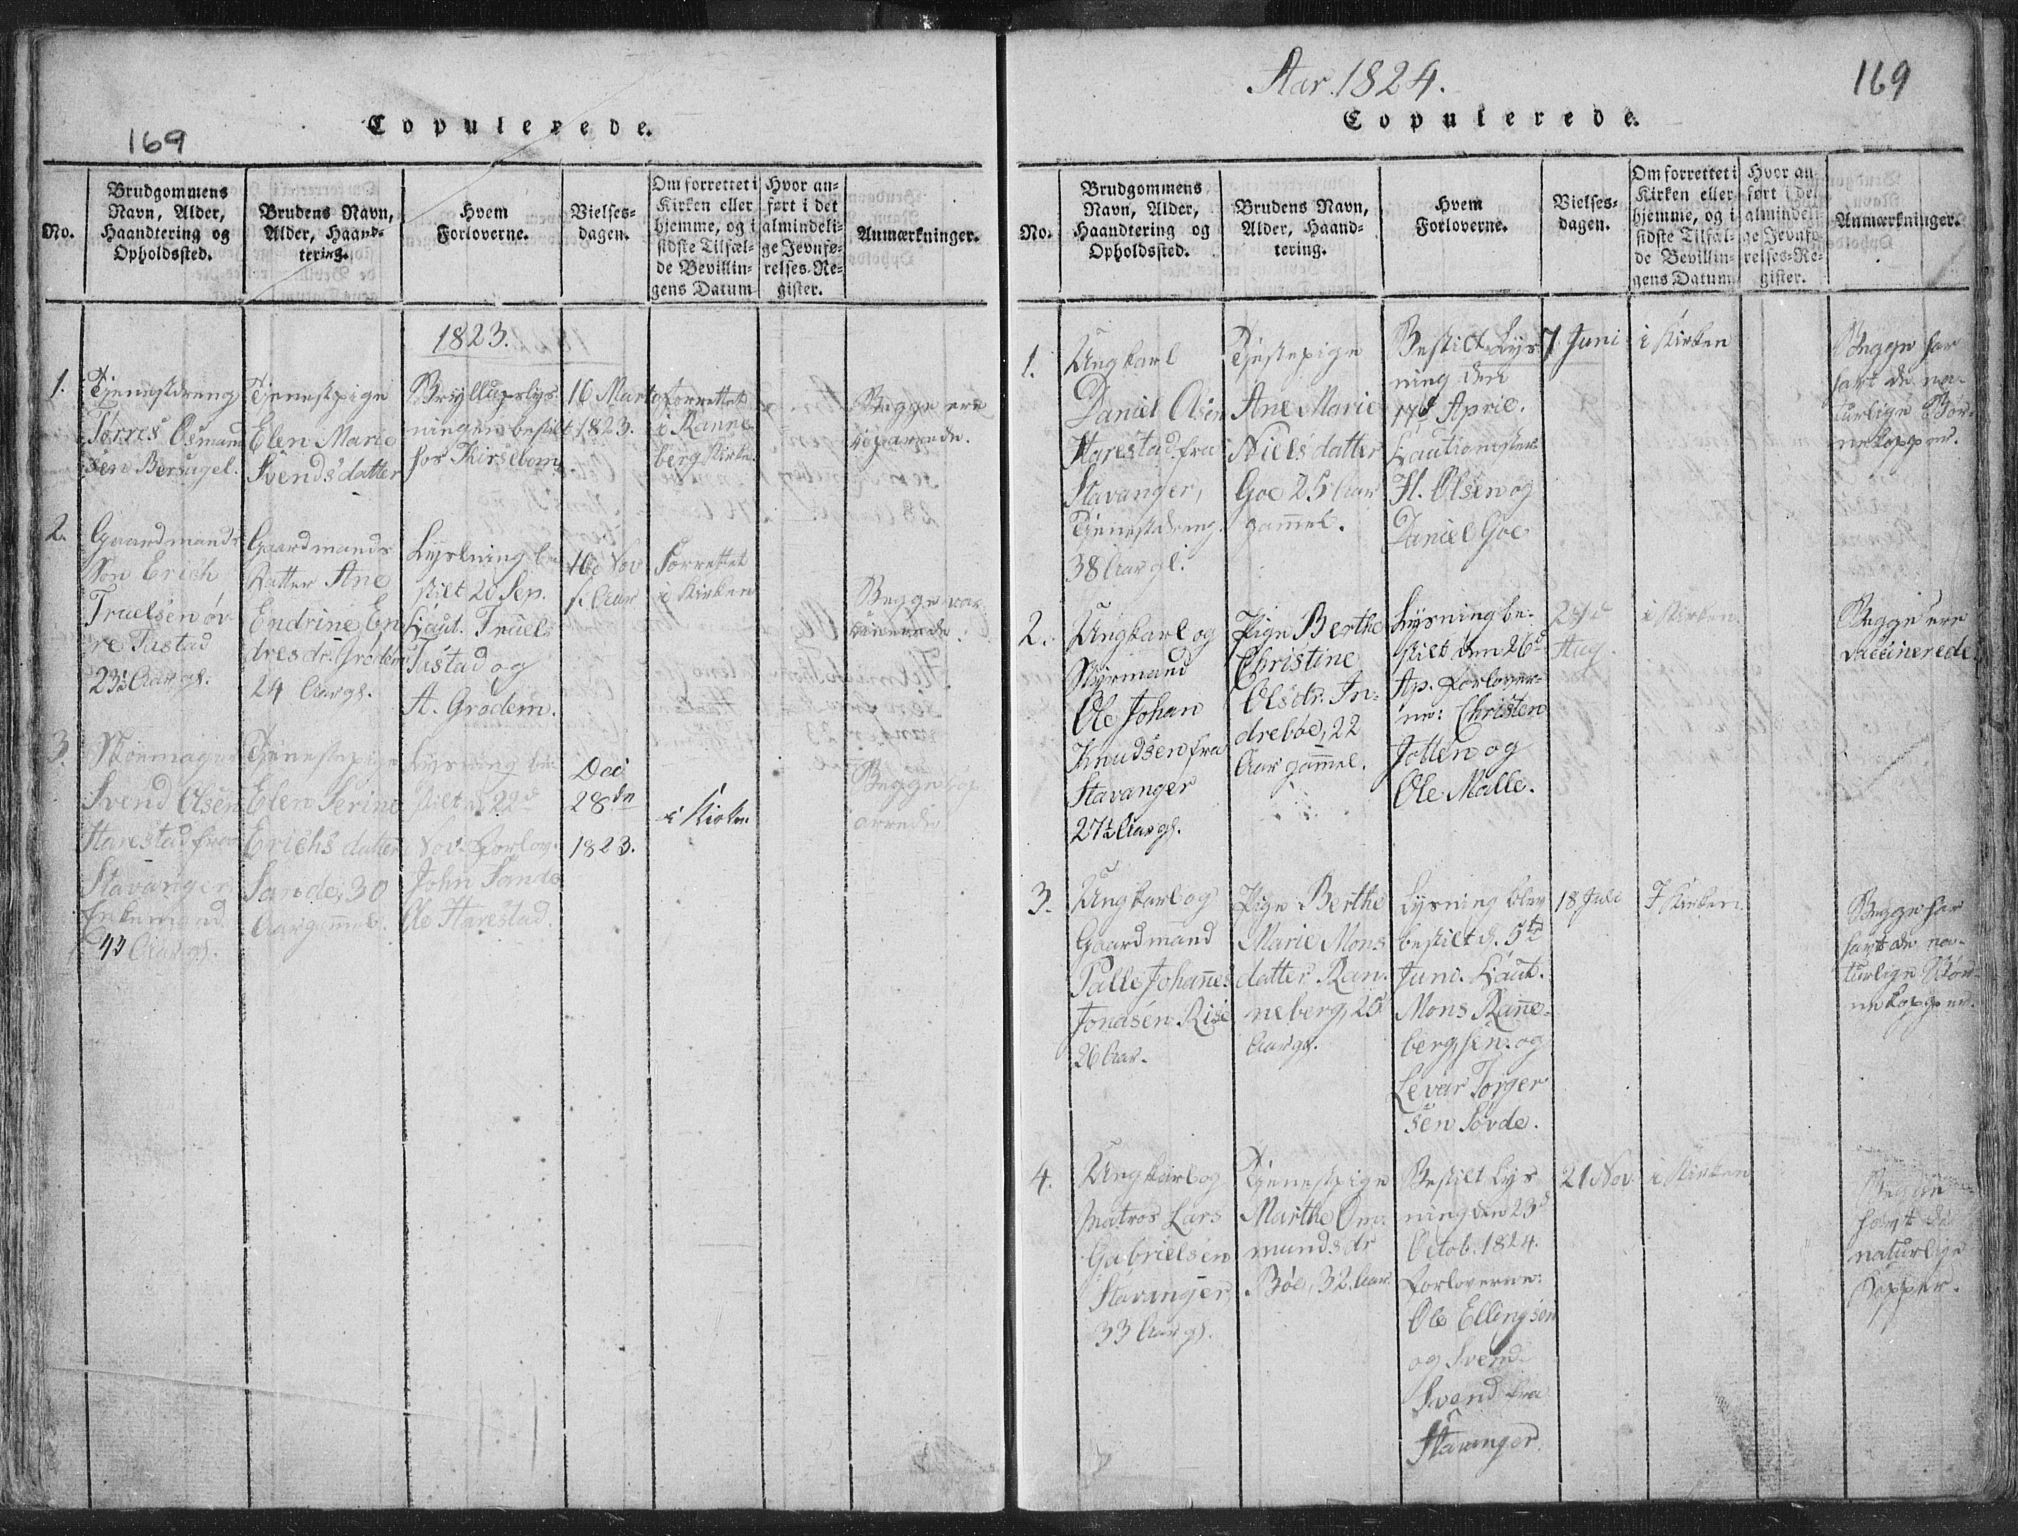 169
Copulerede.
No.
Brudgommens
Navn, Alder,
Haandtering og
Opholdssted.
Brudens Navn,
Alder, Haand-
tering.
Hvem
Forloverne.
Vielses-
dagen.
Om forrettet i
Kirken eller
hjemme, og i
sidste Tilfæl-
de Bevillin-
gens Datum
Hvor an-
ført i det
almindeli-
ge Jevnfø-
relses-Re-
gister.
Anmærkninger.
1823.
1.
Tjenestdreng
Törres Osmund
sen Bersagel.
Tjenestpige
Elen Marie
Svendsdatter
Bryllupslys
ningen bestilt
hos Kirsebom
16 Marts
1823.
Forrettet
i Ranne-
berg Kirke.
Begge ere
2.
Gaardmands
Søn Erich
Truelsen øv
re Tastad
23½ Aar gl.
Gaardmands
Datter Ane
Endrine En
dresdr. Grødem
24 Aar gl.
Lysning be
stilt 20 Sep.
Caut. Truels
Tastad og
A. Grødem.
16de Nov
s. Aar
Forrettet
i Kirken
Begge var
3.
Skoemager
Svend Olsen
Harestad fra
Stavanger
Enkemand
43 Aar gl.
Tjenestepige
Elen Serine
Erichsdatter
Sande, 30
Aar gammel.
Lysning be
stilt d. 22d
Nov. Forlov.
John Sande
Ole Harestad.
Dec
28de
1823.
i Kirken
Begge
169
Aar 1824.
Copulerede.
No.
Brudgommens
Navn, Alder,
Haandtering og
Opholdssted.
Brudens Navn,
Alder, Haand-
tering.
Hvem
Forloverne.
Vielses-
dagen.
Om forrettet i
Kirken eller
hjemme, og i
sidste Tilfæl-
de Bevillin-
gens Datum
Hvor an-
ført i det
almindeli-
ge Jevnfø-
relses-Re-
gister.
Anmærkninger.
1.
Ungkarl
Daniel Olsen
Harestad fra
Stavanger,
Tjenestdreng.
38 Aar gl.
Tjestepige
Ane Marie
Nielsdatter
Goe 25 Aar
gammel.
Bestilt Lys
ning den
17d April.
Cautionister
H. Olsen og
Daniel Goe
7 Juni
i Kirken
Begge har
havt de na-
turlige Bør-
nekopper.
2.
Ungkarl og
Styrmand
Ole Johan
Knudsen fra
Stavanger
27½ Aar gl.
Pige Berthe
Christine
Olsdr. In-
drebøe, 22
Aar gammel.
Lysning be-
stilt den 26d
Ap. Forlover-
ne: Christen
Jotten og
Ole Malle.
Aug.
i Kirken
Begge ere
vaccinerede.
3.
Ungkarl og
Gaardmand
Palle Johannes
Jonasen Rise
26 Aar.
Pige Berthe
Marie Mons
datter Ran-
neberg, 25
Aar gl.
Lysning blev
bestilt d. 5td
Juni. Caut.
Mons Ranne-
berg sen. og
Levar Torger
sen Sövde.
18 Juli
I Kirken.
Begge har
havt de na-
turlige Bør-
nekopper.
4.
Ungkarl og
Matros Lars
Gabrielsen
Stavanger,
33 Aar gl.
Tjenestpige
Marthe Om-
mundsdr
Bøe, 32 Aar
Bestilt Lys
ning den 23d
Octob. 1824.
Forloverne:
Ole Ellingsen
og Svend
Svend fra
Stavanger.
21 Nov.
i Kirken
Begge
havt de
naturlige
Kopper.